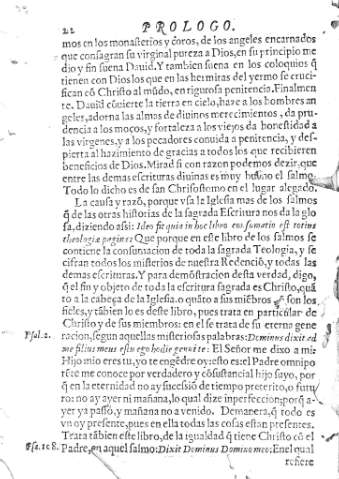 22 PROLOGO.
mos en los monasterios y coros, de los angeles encarnados
que consagran su virginal pureza a Dios, en su principio me
dio y fin suena Dauid. Y tambien suena en los coloquios q̃
tienen con Dios los que en las hermitas del yermo se cruci-
fican cõ Christo al mũdo, en rigurosa penitencia. Finalmen
te. Dauid cõuierte la tierra en cielo, haze a los hombres an
geles, adorna las almas de diuinos merecimientos, da pru-
dencia a los moços, y fortaleza a los viejos da honestidad a
las virgenes, y a los pecadores conuida a penitencia, y des-
pierta al hazimiento de gracias a todos los que reciberen
beneficios de Dios. Mirad si con razon podemos dezir, que
entre las demas escrituras diuinas es muy buẽno el salmo.
Todo lo dicho es de san Chrisostomo en el lugar alegado.
La causa y razõ, porque vsa la Iglesia mas de los salmos
q̃ de las otras historias de la sagrada Escritura nos da la glo
sa, diziendo assi: Ideo fit quia in hoc libro consumatio est totius
theologiæ paginæ Que porque en este libro de los salmos se
contiene la consumacion de toda la sagrada Teologia, y se
cifran todos los misterios de nuestra Redenciõ, y todas las
demas escrituras. Y para demõstracion desta verdad, digo,
q̃ el fin y objeto de toda la escritura sagrada es Christo, quã
to a la cabeça de la Iglesia. o quãto a sus miẽbros son los
fieles, y tãbien lo es deste libro, pues trata en particular de
Christo y de sus miembros: en el se trata de su eterna gene
Psal. 2. racion, segun aquellas misteriosas palabras: Dominus dixit ad
me filius meus es tu ego hodie genui te: El Señor me dixo a mi:
Hijo mio eres tu, yo te engẽdre oy: esto es: el Padre omnipo
tẽte me conoce por verdadero y cõsustancial hijo suyo, por
q̃ en la eternidad no ay sucessiõ de tiempo preterito, o futu
ro: no ay ayer ni mañana, lo qual dize imperfeccion: porq̃ a-
yer ya passò, y mañana no a venido. Demanera, q̃ todo es
vn oy presente, pues en ella todas las cosas estan presentes.
Trata tãbien este libro, de la igualdad q̃ tiene Christo cõ el
Psa. 108. Padre, en aquel salmo: Dixit Dominus Domino meo: En el qual
refiere